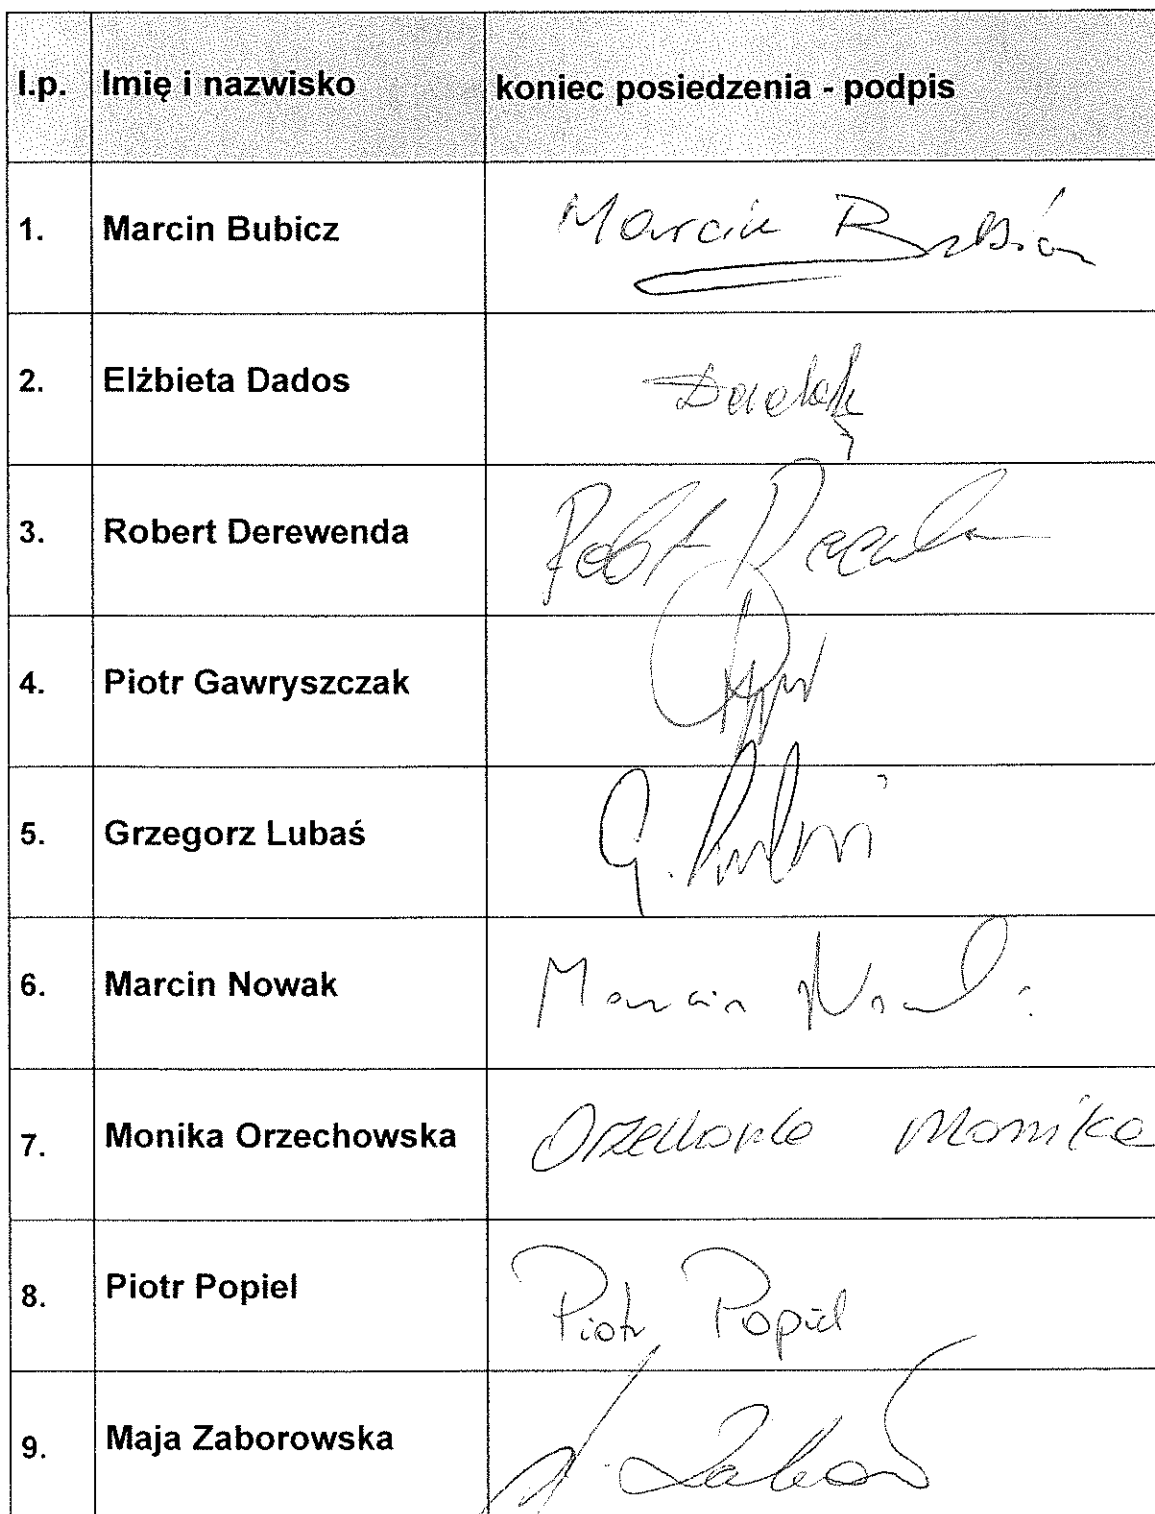 l.p. Imię i nazwisko koniec posiedzenia - podpis
1. Marcin Bubicz Marcin Bubicz
2. Elżbieta Dados
3. Robert Derewenda
4. Piotr Gawryszczak
5. Grzegorz Lubaś G.
6. Marcin Nowak Marcin
7. Monika Orzechowska Monika
8. Piotr Popiel Piotr Popiel
9. Maja Zaborowska